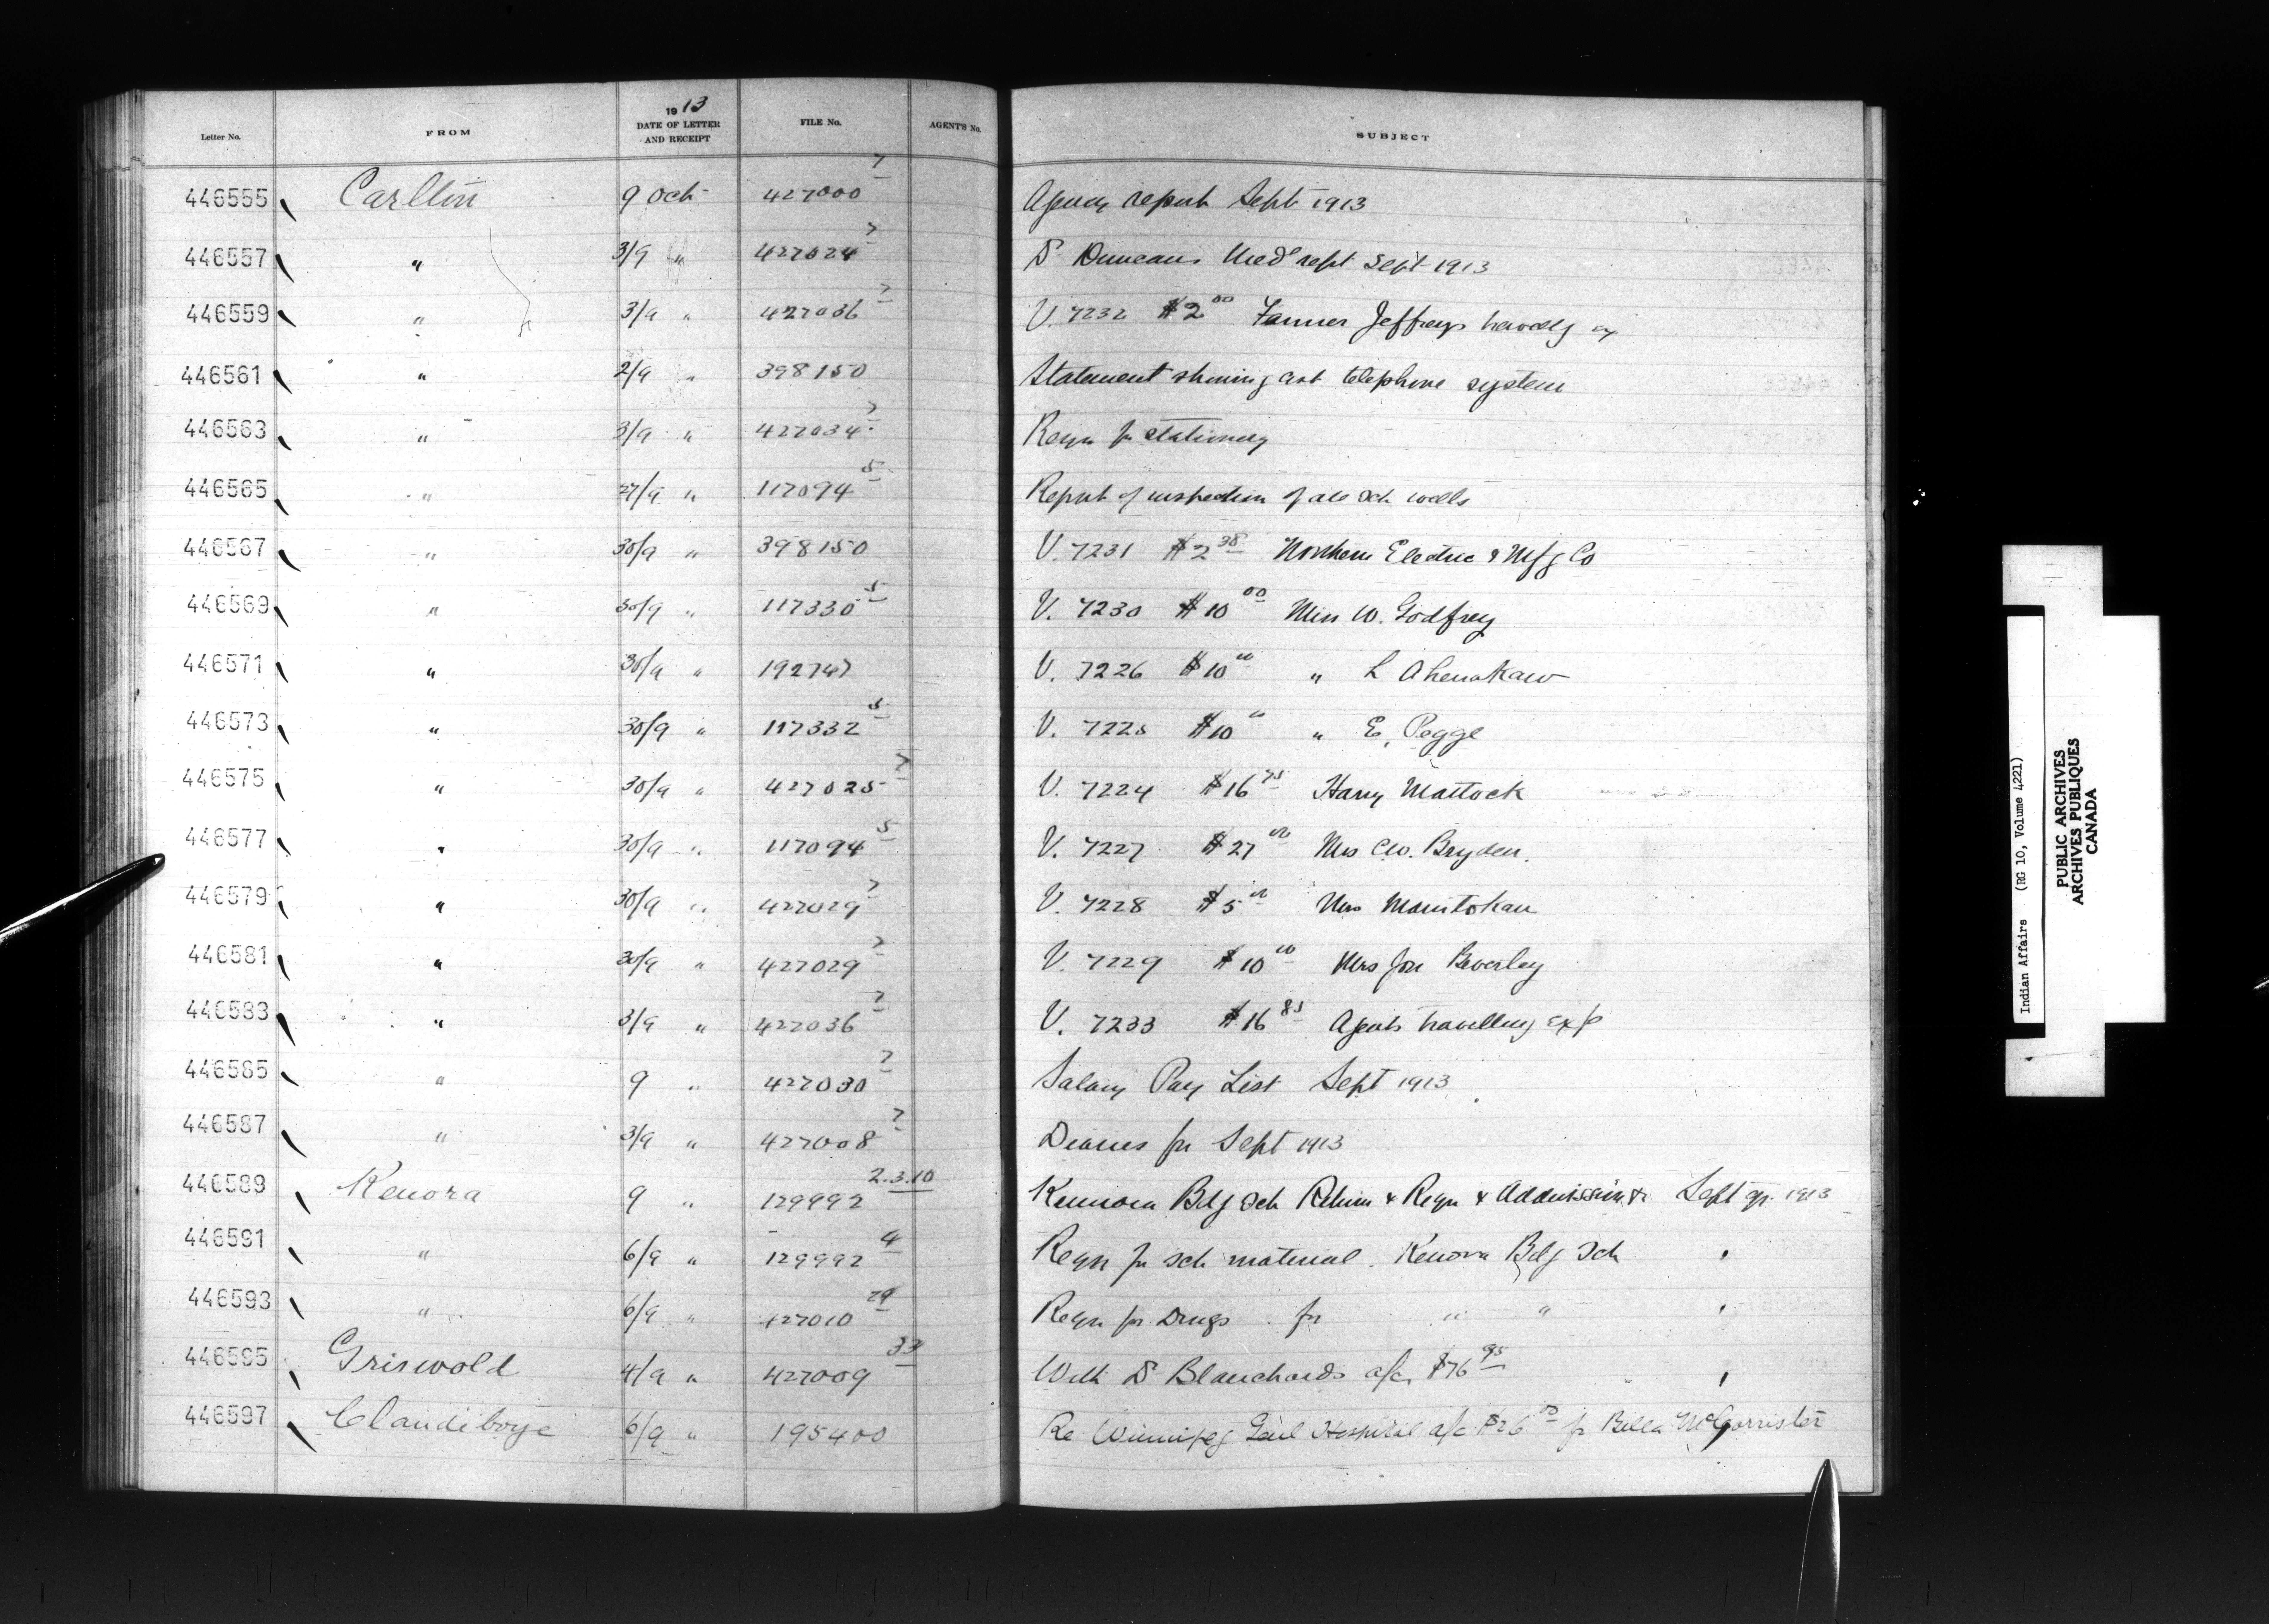 Letter No. FROM 1913 DATE OF LETTER AND RECEIPT FILE No. AGENT'S No. SUBJECT
446555 Carlton 9 Oct 427000 7 Agency report Sept 1913
446557 " 3/9 " 427024 7 Dr Duncans Med rept Sept 1913
446559 " 3/9 " 427036 7 V. 7232 $2 00 Farmer Jeffreys
446561 " 2/9 " 398150 Statement showing cost telephone system
446563 " 3/9 " 427034 7 Reqn for stationery
446565 " 27/9 " 117094 5 Report of inspection of all sch wells
446567 " 30/9 " 398150 V. 7231 $2 38 Northern Electric & Mfg Co
446569 " 30/9 " 117330 5 V. 7230 $10 00 Miss W. Godfrey
446571 " 30/9 " 192747 V. 7226 $10 00 " L Ahenakaw
446573 " 30/9 " 117332 5 V. 7225 $10 00 " E. Pegge
446575 " 30/9 " 427025 7 V. 7224 $16 75 Harry Mattock
446577 " 30/9 " 117094 5 V. 7227 $27 00 Mrs CW. Bryden.
446579 " 30/9 " 427029 7 V. 7228 $5 00 Mrs Manitokan
446581 " 30/9 " 427029 7 V. 7229 $10 00 Mrs Jon Beverley
446583 " 3/9 " 427036 7 V. 7233 $16 85 Agents travelling exp
446585 " 9 " 427030 7 Salary Pay List Sept 1913
446587 " 3/9 " 427008 7 Diaries for Sept 1913
446589 Kenora 9 " 129992 2.3.10 Kennora Bdg Sch Return & Reqn & Sept qr. 1913
446591 " 6/9 " 129992 4 Reqn for sch material. Kenora Bdg Sch "
446593 " 6/9 " 427010 29 Reqn for Drugs for " " "
446595 Griswold 4/9 " 427009 33 With Dr Blanchards a/c $76 95 "
446597 Clandeboye 6/9 " 195400 Re Winnipeg Genl Hospital a/c $26 00 for Bella McCorrister
Indian Affairs (RG 10, Volume 4221)
PUBLIC ARCHIVES
ARCHIVES PUBLIQUES
CANADA